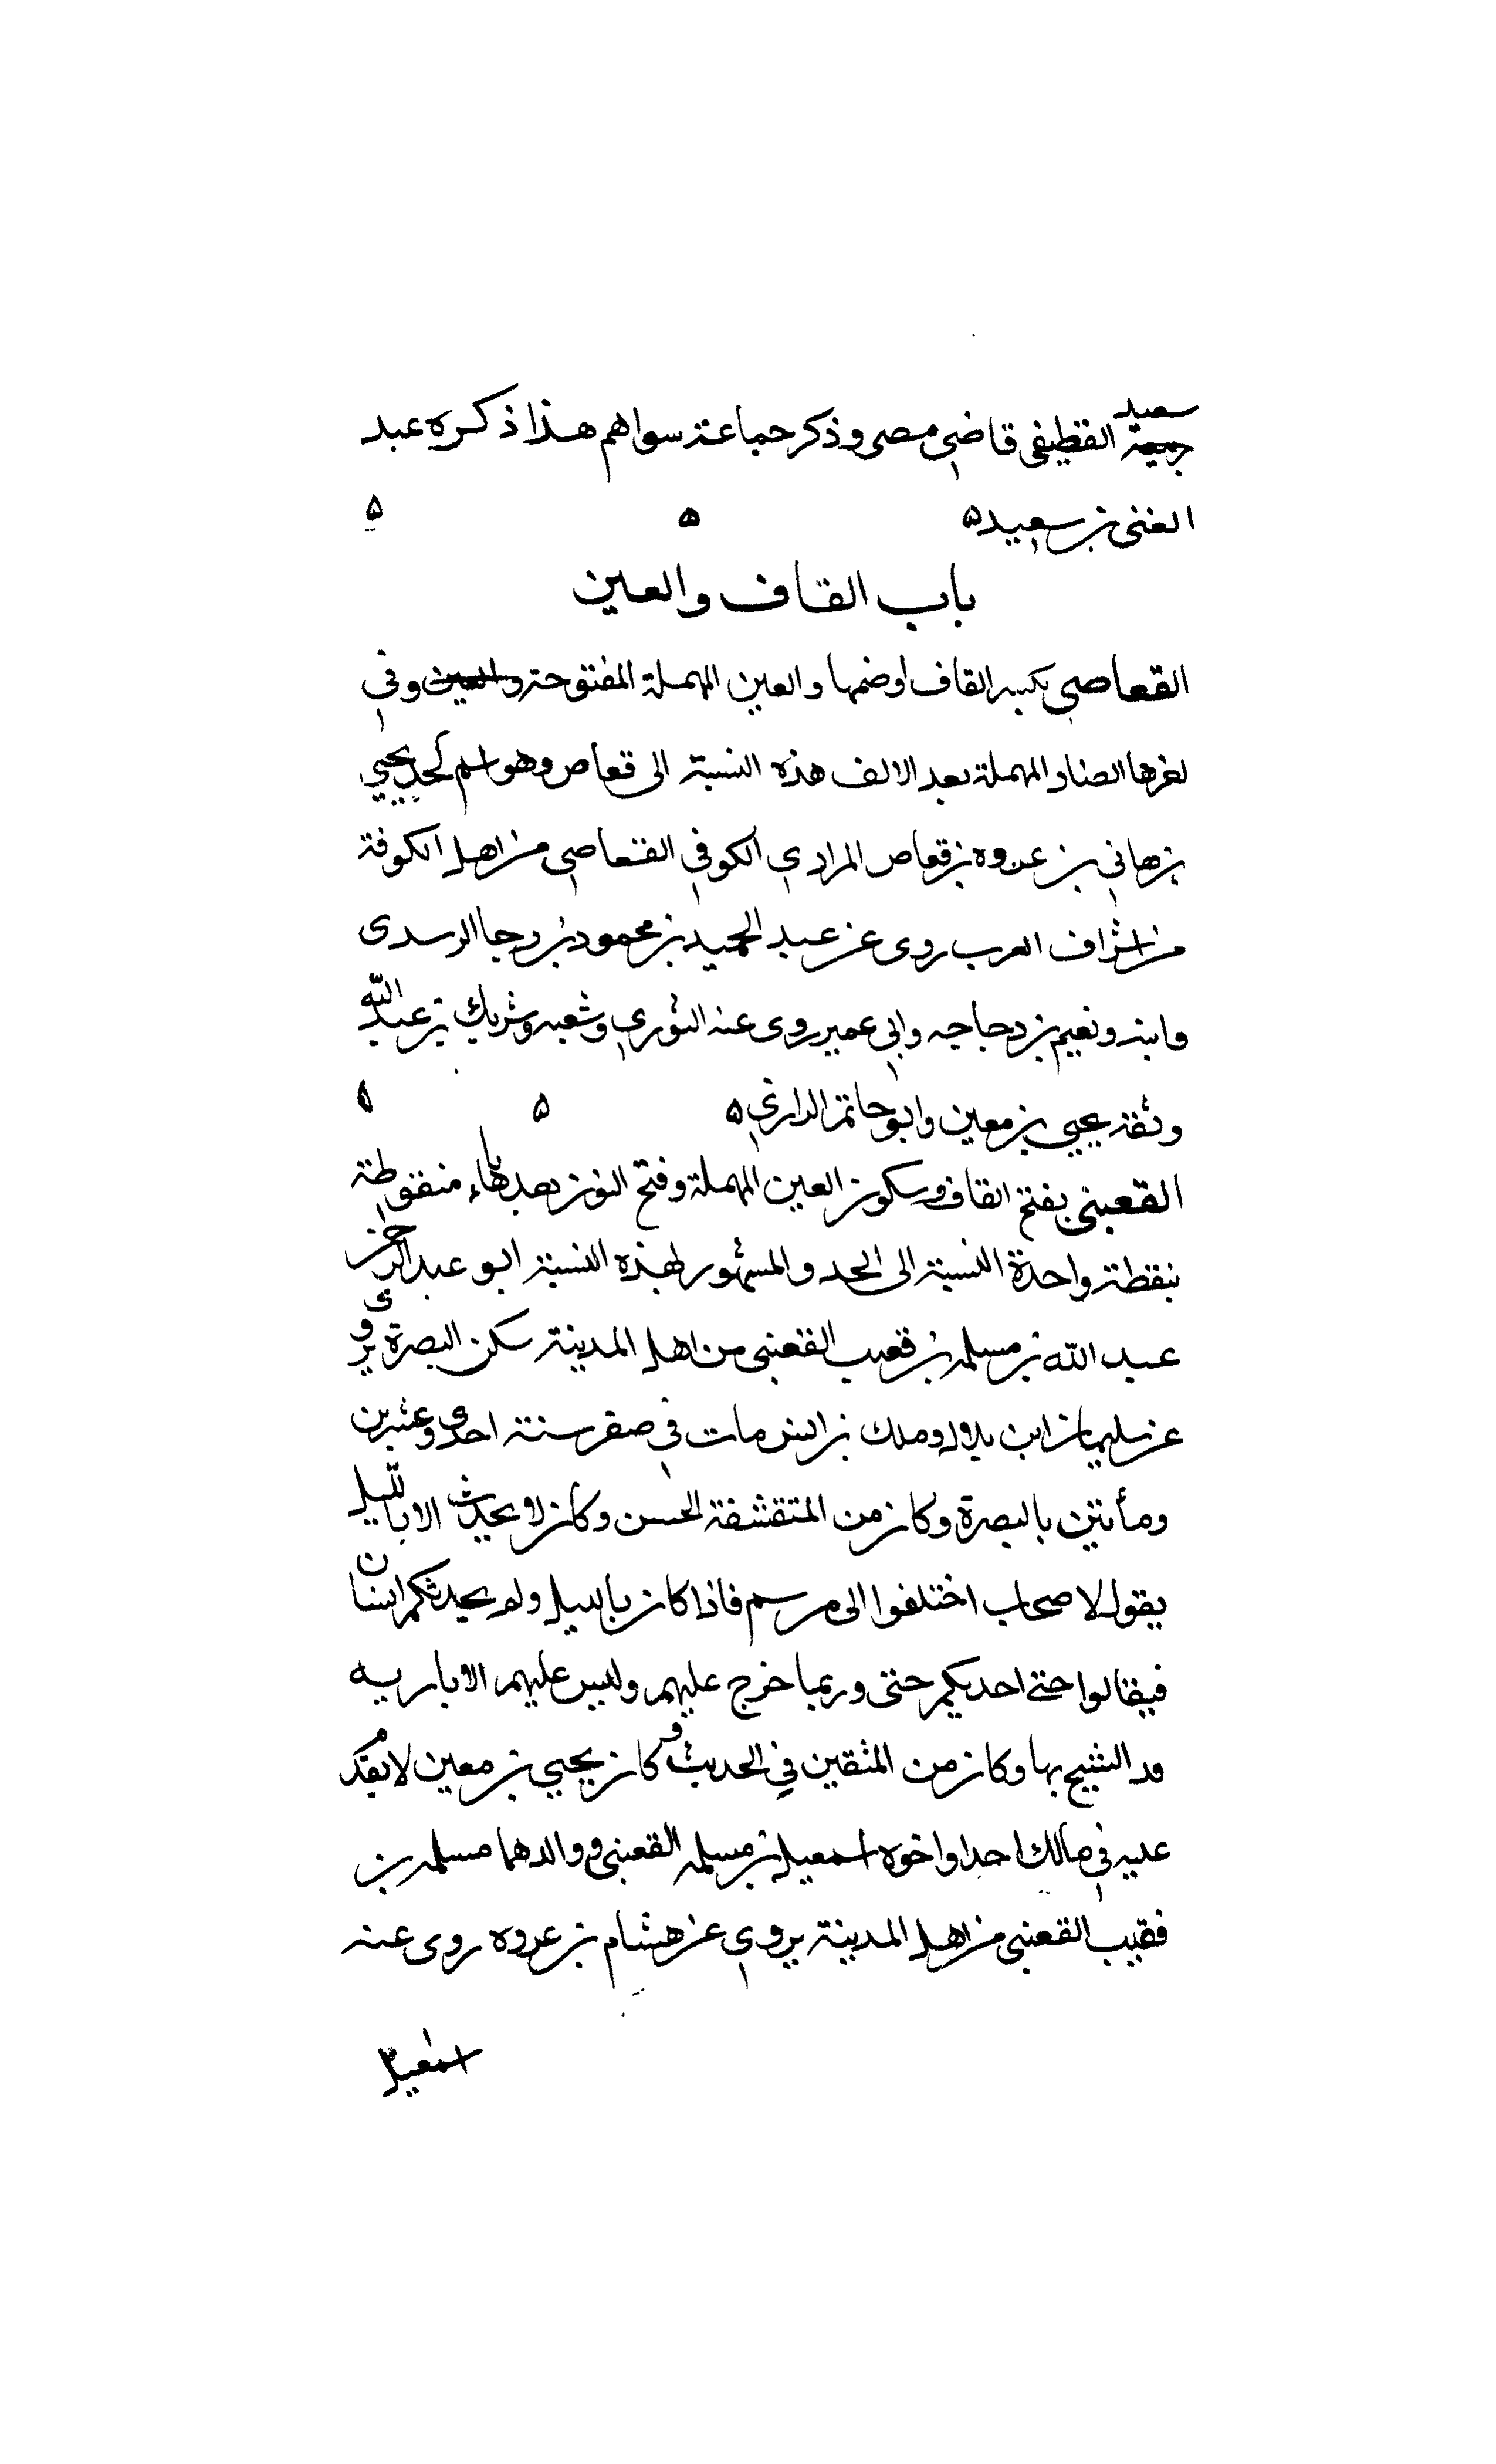 سعيد القطيفى قاضى مصر وذكر جماعة سواهم هذا ذكره عبد
الغنى بن سعيد ه ه ه
باب القاف والعين
القعاصى بكسر القاف او ضمها والعين المهملة المفتوحة والعين وفى
اخرها الصاد المهملة بعد الالف هذه النسبة الى قعاص وهو اسم لجد يحيى
بن هانى بن عروه بن قعاص المرادى الكوفى القعاصى من اهل الكوفة
من اشراف العرب روى عن عبد الحميد بن محمود بن رجا
وابنه ونعيم بن دجاجه وابى عمير روى عنه الثورى وشعبه وشريك بن عبد الله
وثقه يحيى بن معين وابو حاتم الرازى ه ه ه
القعنبى بفتح القاف وسكون العين المهملة وفتح النون بعدها باء منقوطة
بنقطة واحدة النسبة الى الجد والمشهور بهذه النسبة ابو عبد الرحمن
عبد الله بن مسلمه بن قعنب القعنبى من اهل المدينة سكن البصرة يروى
عن سليمان ابن بلال وملك بن انس مات فى صفر سنة احدى وعشرين
ومأتين بالبصرة وكان من المتقشفة الخسن وكان لا يحدث الا بالليل
يقول لاصحاب اختلفوا الى من سم فاذا كان بالليل ولم يحدثكم انسان
فيقالوا حتى احدثكم حتى وربما خرج عليهم وليس عليهم الا باريه
قد اتشح بها وكان من المتقين فى الحديث وكان يحيى بن معين لا يقدم
عليه فى مالك احدا واخوه اسمعيل بن مسلمه القعنبى ووالدهما مسلمه بن
قعنب القعنبى من اهل المدينة يروى عن هشام بن عروه روى عنه
اسمعيل